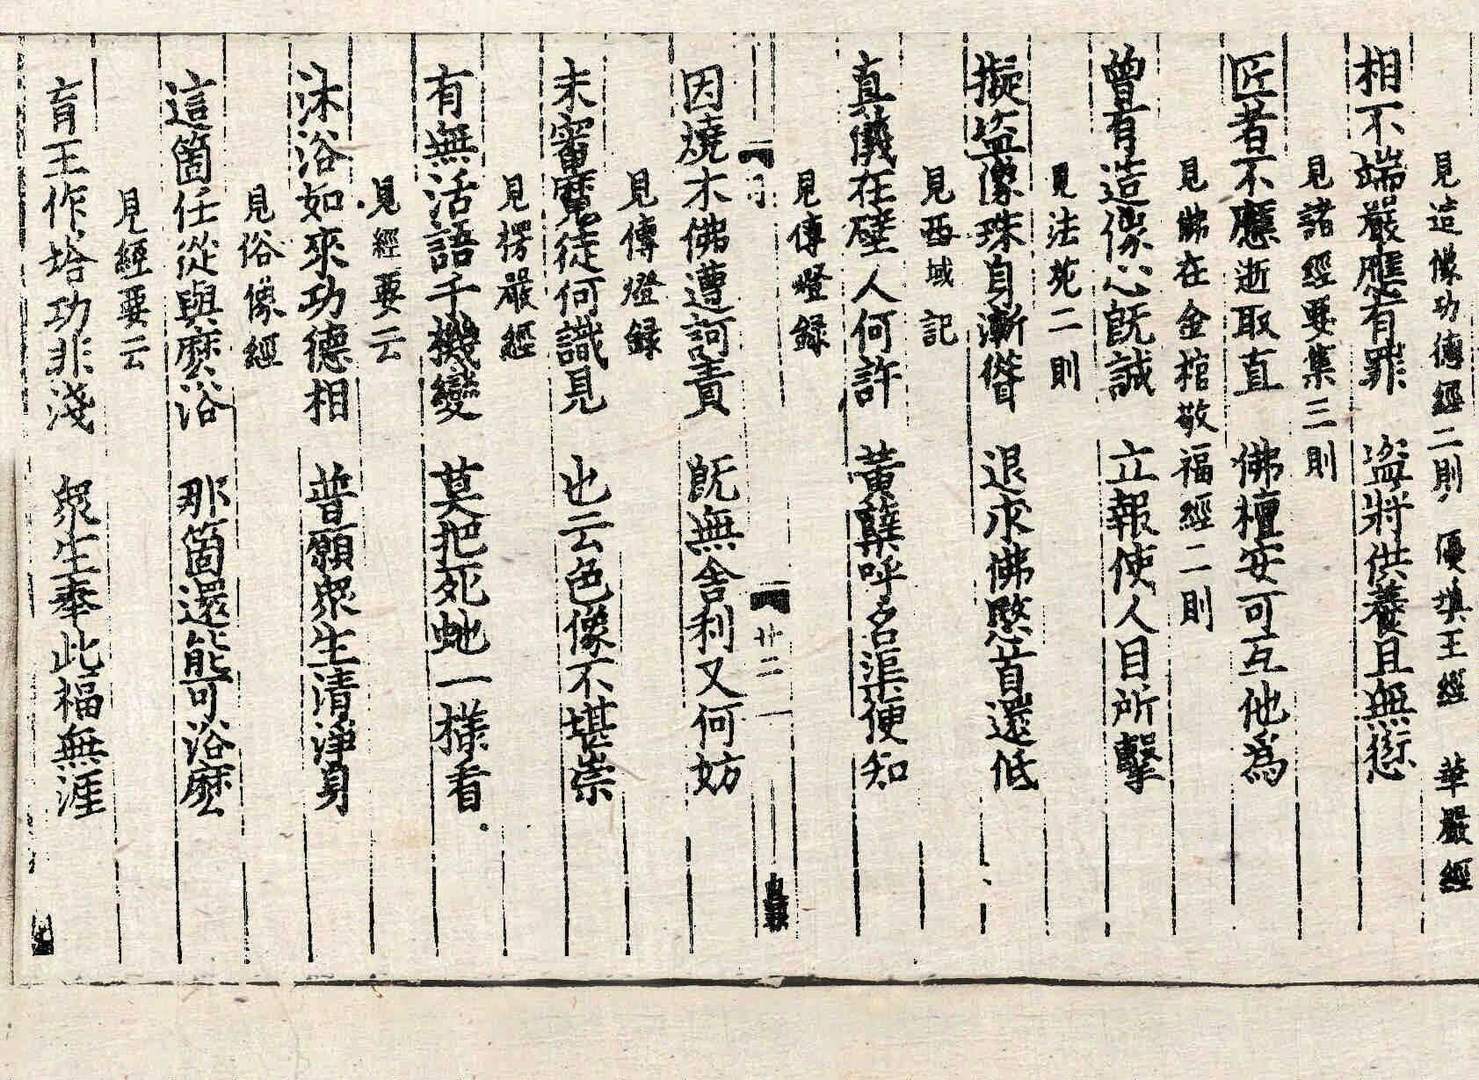 見造像功德經二則 優填王經 華嚴經
相不端嚴應有罪 盜將供養且無愆
見諸經要集三則
匠者不應逝取直 佛檀安可互他為
見佛在金棺敬福經二則
曾有造像心既誠 立報使人目所擊
見法苑二則
擬盜像珠自漸聳 退求佛愍首還低
見西域記
真儀在壁人何許 黃蘗呼名渠便知
見傳燈録
廿二
因燒木佛遭訶責 既無舍利又何妨
見傳燈録
未審魔徒何識見 也云色像不堪崇
見楞嚴經
有無活語千機變 莫把死虵一樣看
見經要云
沐浴如來功德相 普願眾生清淨身
見俗像經
這箇任從與麼浴 那箇還能可浴麼
見經要云
育王作塔功非淺 眾生奉此福無涯